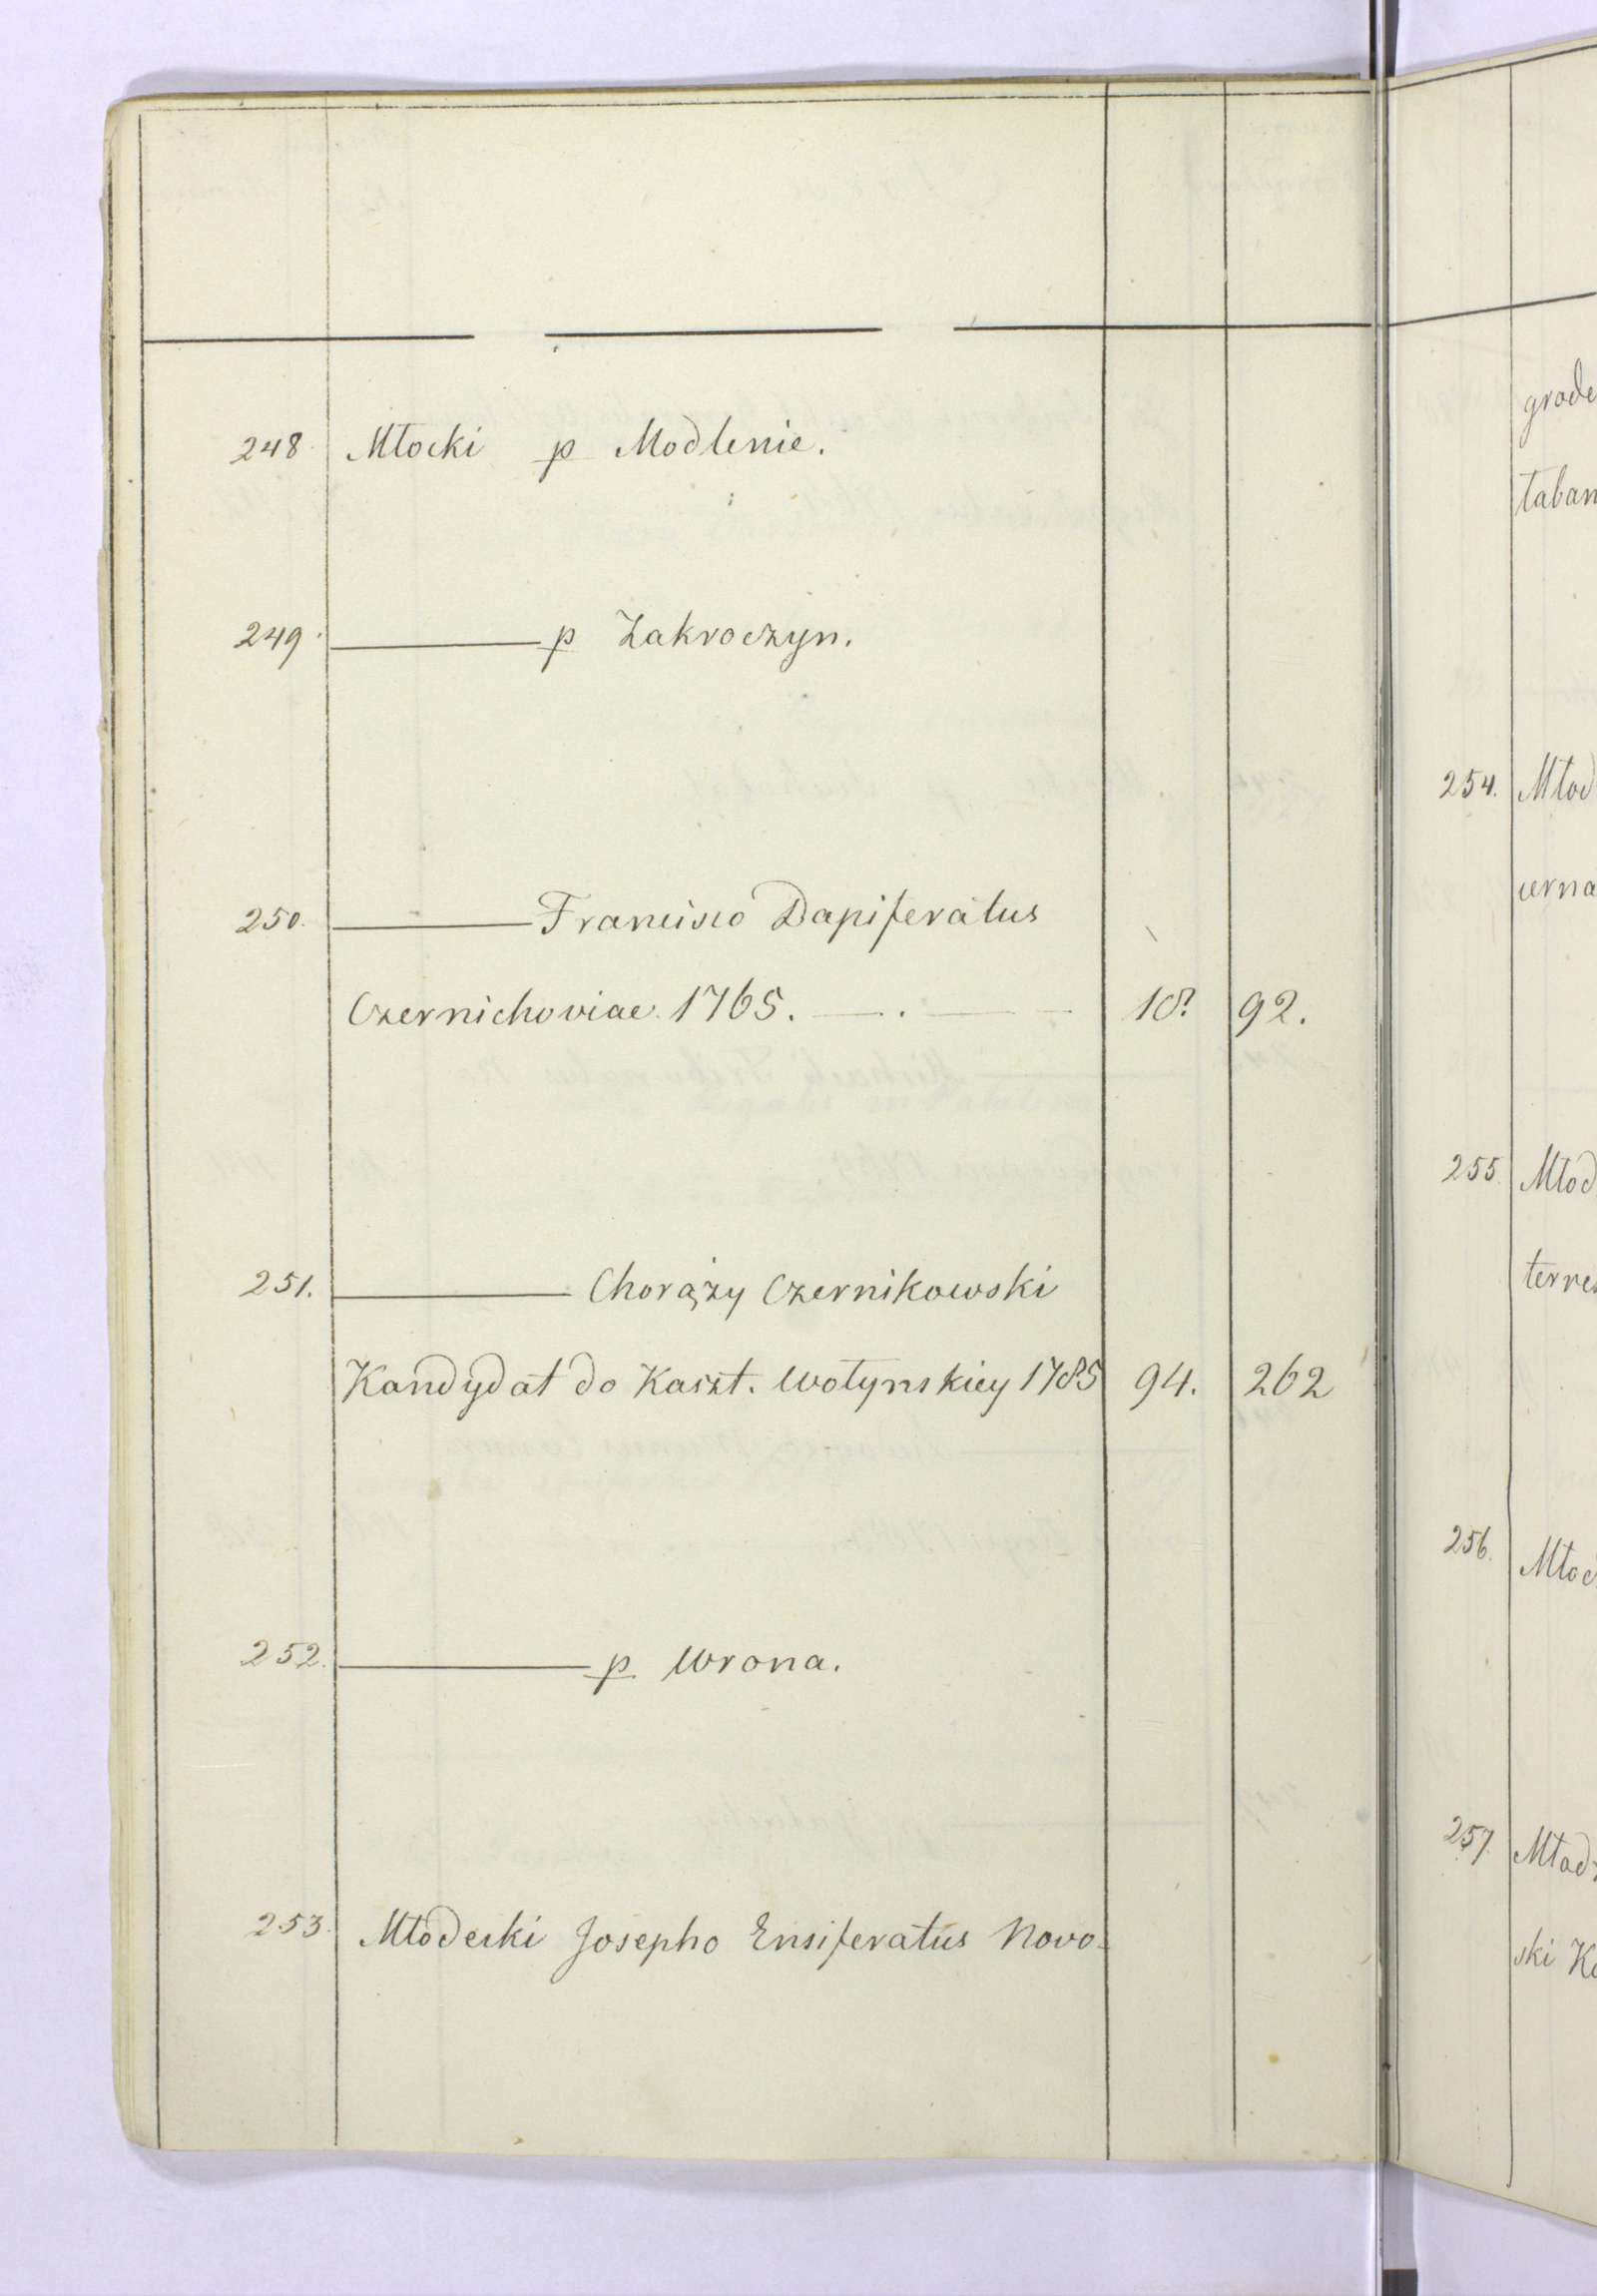 248. Młocki p Modlenie.
249. ——— p Zakroczyn.
250. ——— Francisco Dapiferatus
Czernichoviae 1765. — . — 18. 92.
251. ——— Chorąży Czernikowski
Kandydat do Kaszt. Wołynskiey 1785 94. 262
252. ——— p Wrona.
253. Młodecki Josepho Ensiferatus Novo-
grode
taban
254. Młod
cerna
255. Młod
terres
256. Młod
257. Młodz
ski Ka